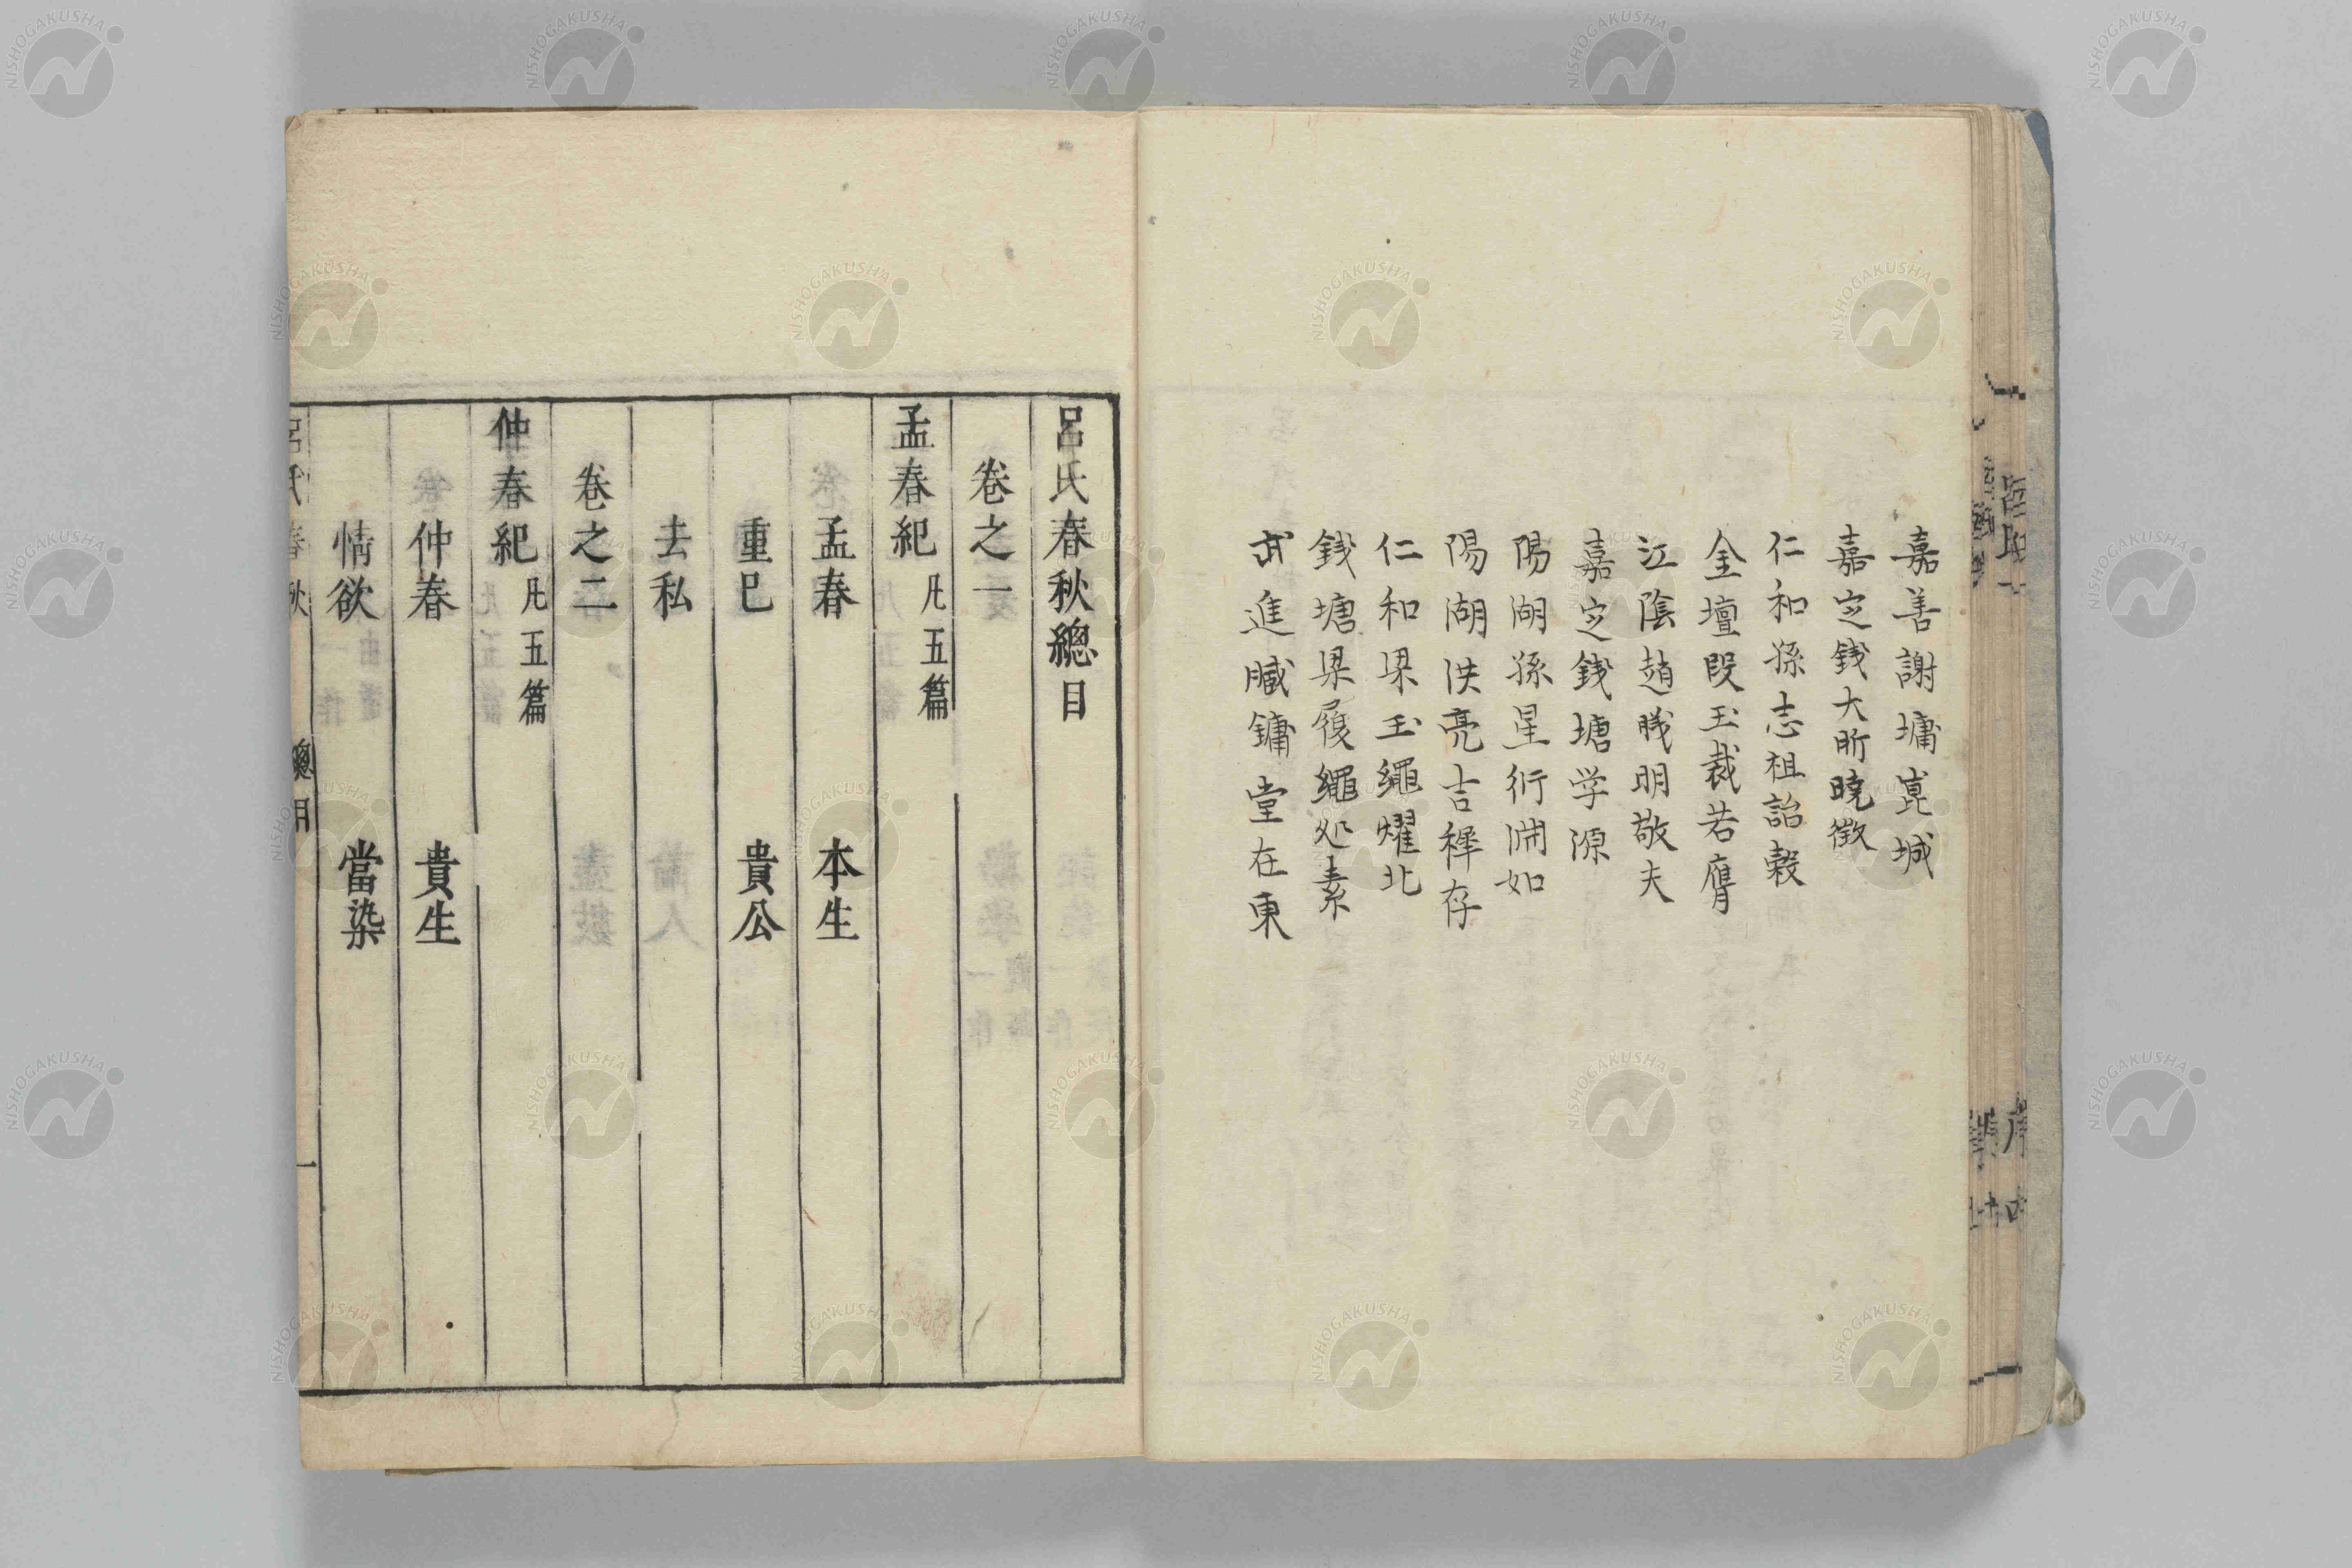 嘉善謝墉崑城
嘉定錢大昕曉徵
仁和孫志祖詒穀
金壇段玉裁若膺
江陰趙曦明敬夫
嘉定錢塘学源
陽湖孫星衍淵如
陽湖洪亮吉穉存
仁和梁玉繩燿北
錢塘梁履繩処素
武進臧鏞堂在東
呂氏春秋總目
卷之一
孟春紀 凡五篇
孟春 本生
重巳 貴公
去私
卷之二
仲春紀 凡五篇
仲春 貴生
情欲 當染
呂氏春秋 總目 一
NISHOGAKUSHA